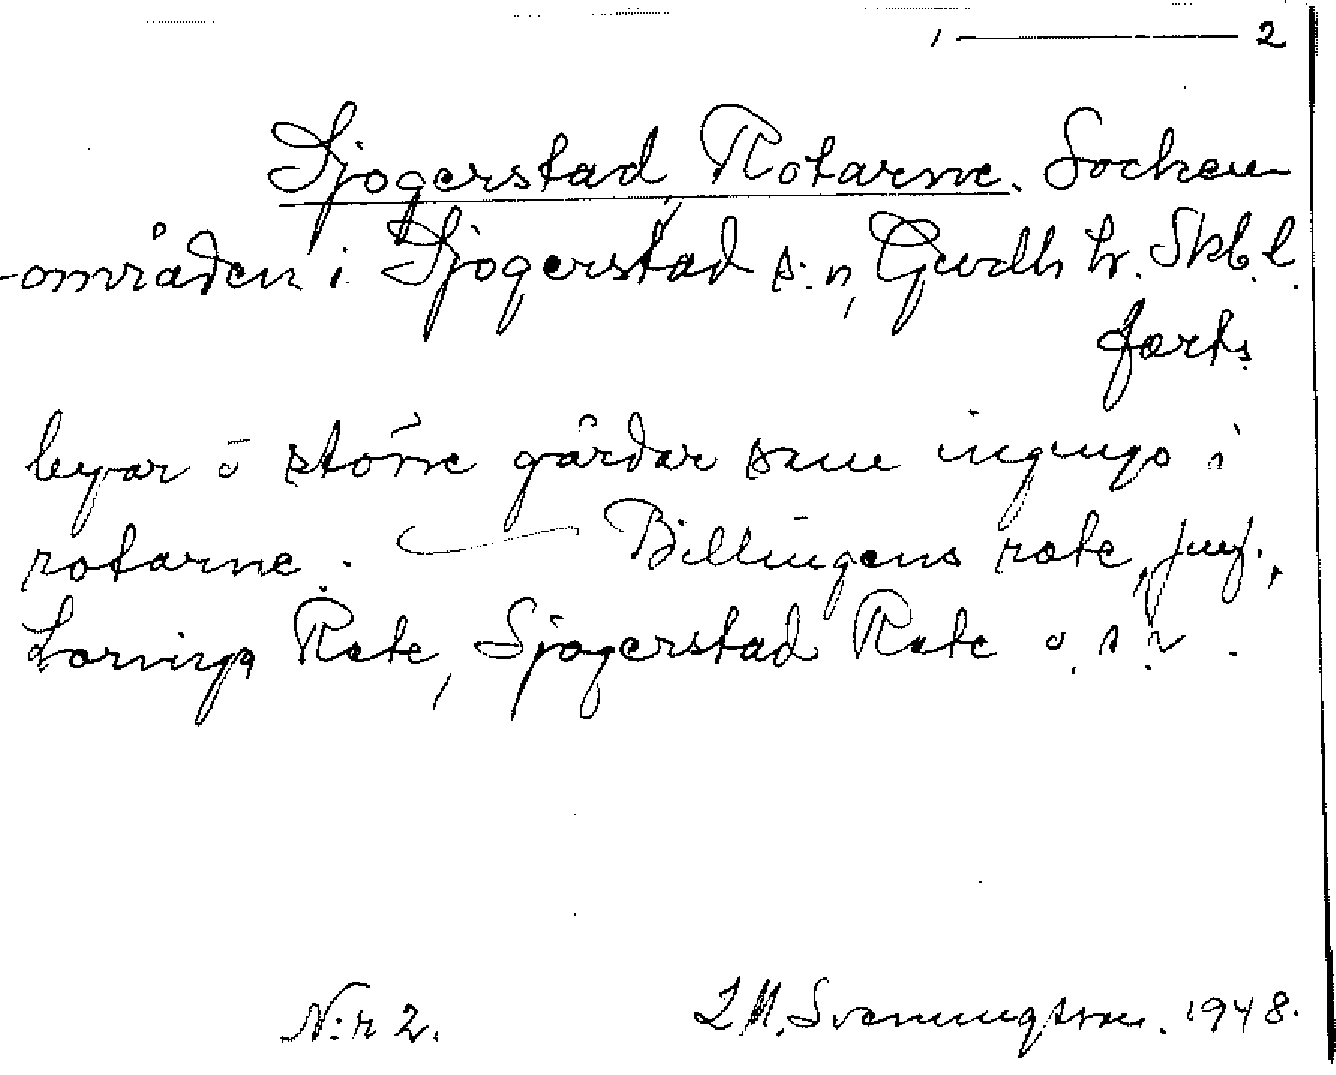 1 — 2
Sjogerstad, Rotarne. Socken
-områden i Sjogerstad s:n, Gudh hr. Skb. l.
forts.
byar o större gårdar som ingingo i
rotarne. — Billingens rote, jmf.,
Lovings Rote, Sjogerstad Rote o. s. v.
N:r 2. L M. Svenungsson. 1948.